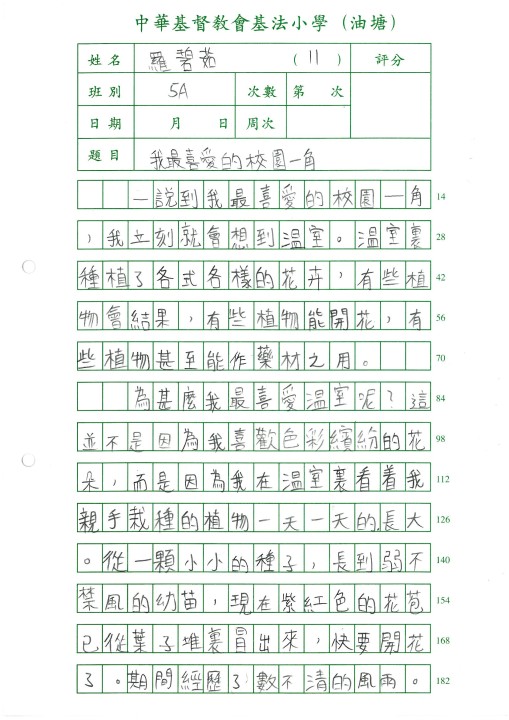 中華基督教會基法小學（油塘）
姓名 羅碧茹 （11） 評分
班別 5A 次數 第 次
日期 月 日 周次
題目 我最喜愛的校園一角
一說到我最喜愛的校園一角 14
，我立刻就會想到溫室。溫室裏 28
種植了各式各樣的花卉，有些植 42
物會結果，有些植物能開花，有 56
些植物甚至能作藥材之用。 70
為甚麼我最喜愛溫室呢？這 84
並不是因為我喜歡色彩繽紛的花 98
朵，而是因為我在溫室裏看着我 112
親手栽種的植物一天一天的長大 126
。從一顆小小的種子，長到弱不 140
禁風的幼苗，現在紫紅色的花苞 154
已從葉子堆裏冒出來，快要開花 168
了。期間經歷了數不清的風雨。 182